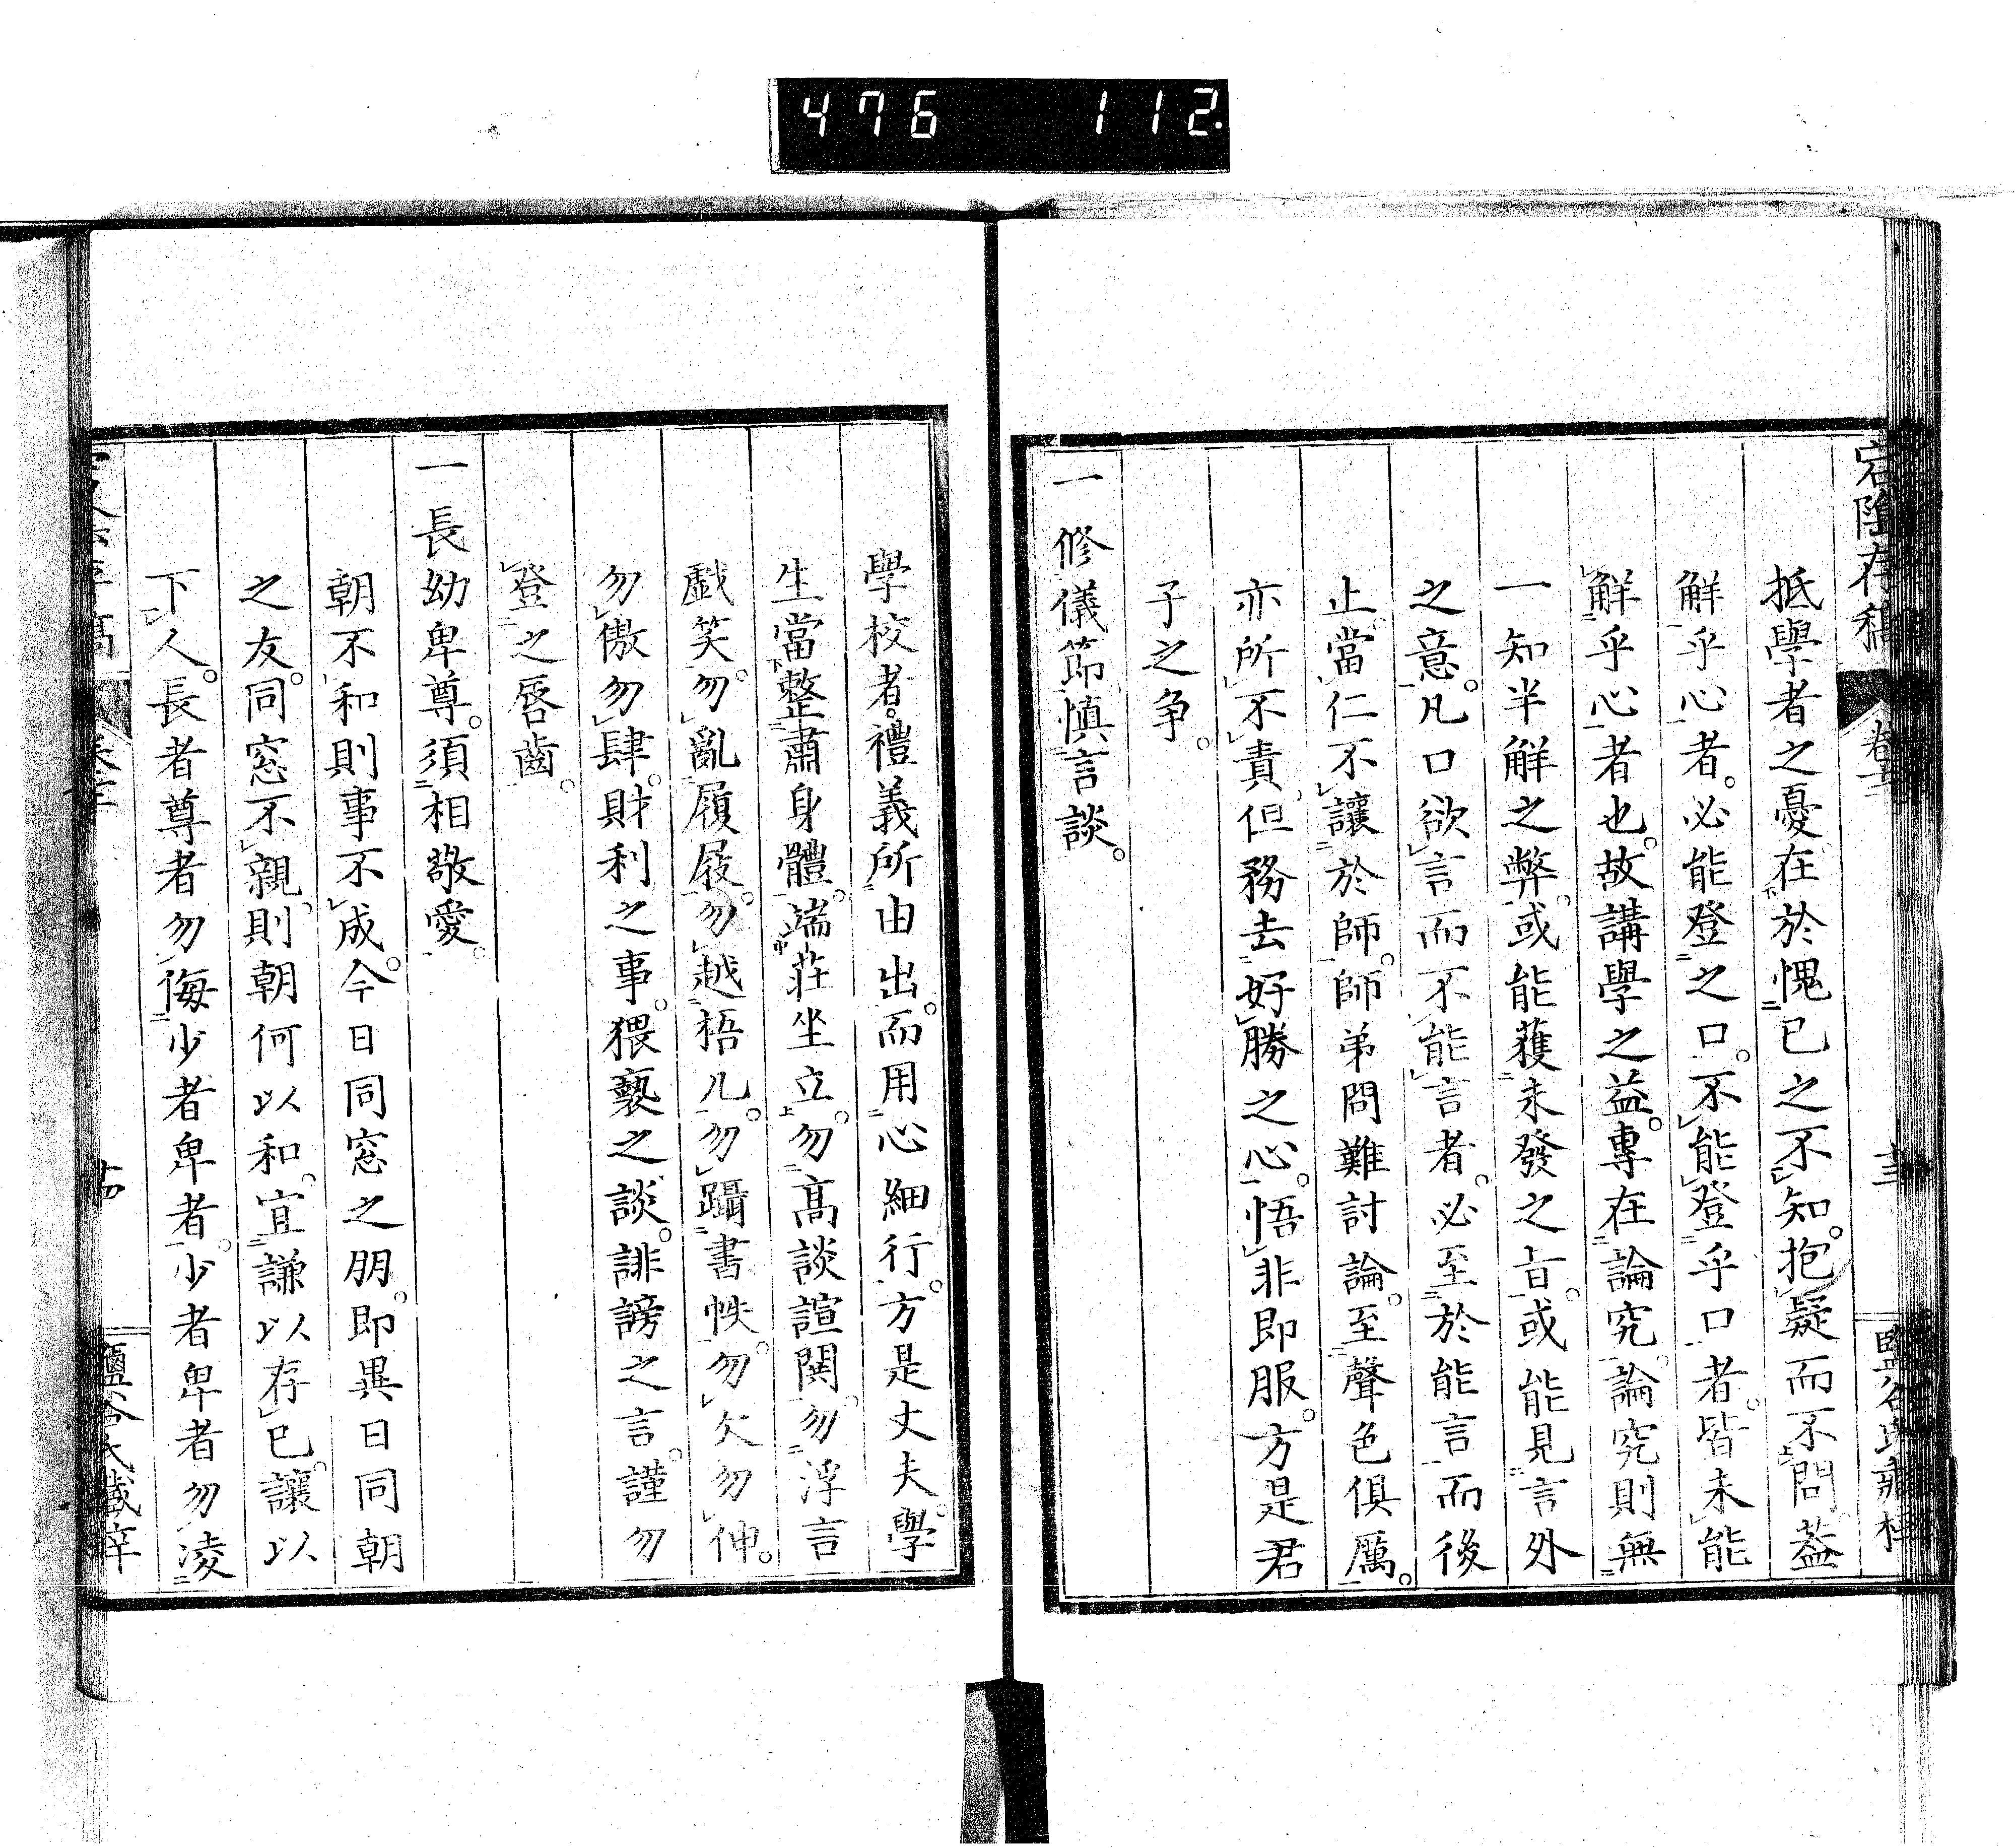 476 112.
宕陰存稿 卷十二 十三
抵學者之憂在於愧已之不知。抱疑而不問。蓋
解乎心者。必能登之口。不能登乎口者。皆未能
解乎心者也。故講學之益。專在論究。論究則無
一知半解之弊。或能獲未發之旨。或能見言外
之意。凡口欲言而不能言者。必至於能言而後
止。當仁不讓於師。師弟問難討論。至聲色俱厲。
亦所不責。但務去好勝之心。悟非即服。方是君
子之争。
一修儀節慎言談。
學校者。禮義所由出。而用心細行。方是丈夫。學
生當整肅身體。端莊坐立。勿高談諠鬨。勿浮言
戯笑。勿亂履屐。勿越梧几。勿躡書帙。勿欠勿伸。
勿傲勿肆。財利之事。猥褻之談。誹謗之言。謹勿
登之唇齒。
一長幼卑尊。須相敬愛。
朝不和則事不成。今日同窓之朋。即異日同朝
之友。同窓不親。則朝何以和。宜謙以存已。讓以
下人。長者尊者勿侮少者卑者。少者卑者勿凌
十四